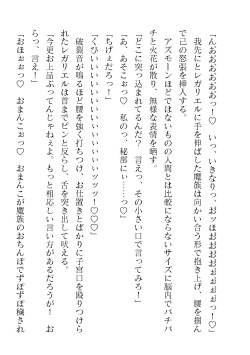 「んおおおおおおっ！♡　いっ、いきなりっ、おッほおおおおおぉぉぉっ！♡」
　我先にとレガリエルに手を伸ばした魔族は向かい合う形で抱き上げ、腰を掴んで己の怒張を挿入する。
　アズモーンほどではないものの人間とは比較にならないサイズに脳内でバチバチと火花が散り、無様な表情を晒す。
「どこに突っ込まれてるんだ？　言えっ、その小さい口で言ってみろ！」
「あ、あそこぉっ♡　私のっ、秘部にぃ……っ♡」
「ちげぇだろっ！」
「くひいいいいいいいいいいいいいいッッッ！♡♡♡」
　破裂音が鳴るほど腰を強く打ちつけ、お仕置きとばかりに子宮口を殴りつけられたレガリエルは首までピンと反らし、舌を突き出して吠える。
「今更お上品ぶってんじゃねぇよ、もっと相応しい言い方があるだろうが！　おらっ、言え！」
「おほぉぉっ♡　おまんこぉっ♡　おまんこが魔族のおちんぽでずぼずぼ穢され